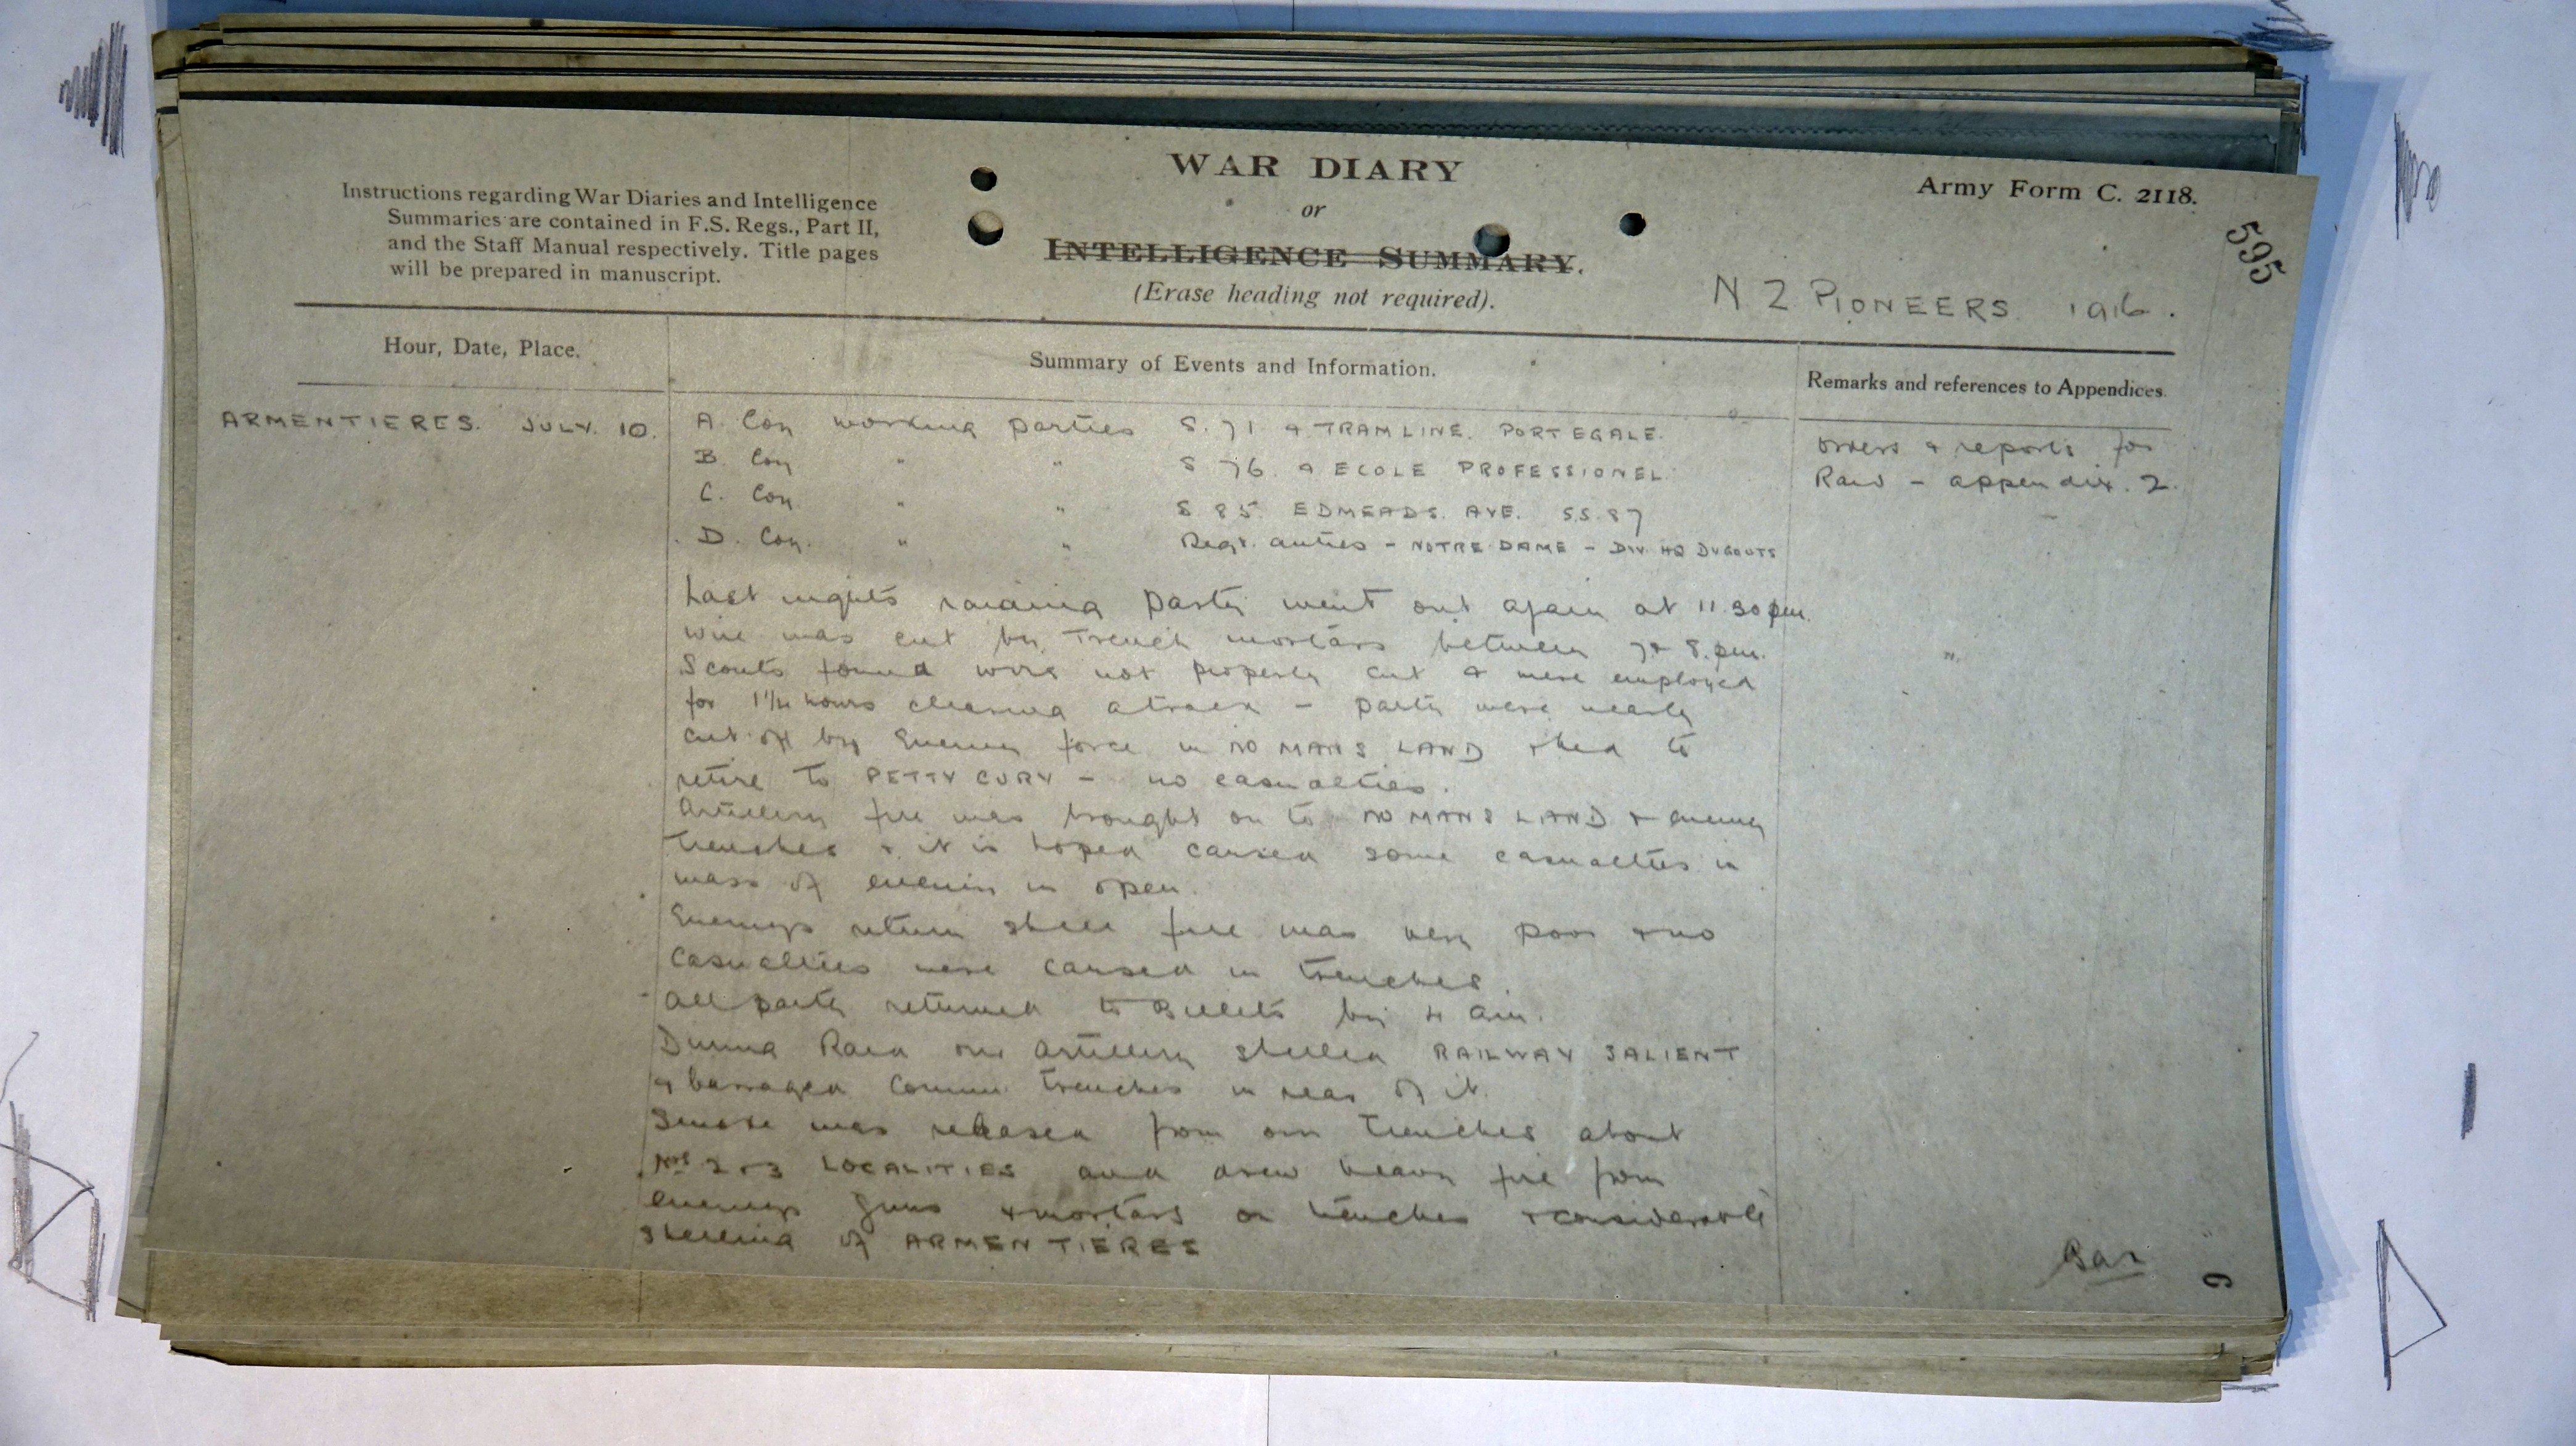 WAR DIARY
or
INTELLIGENCE SUMMARY.
(Erase heading not required).
Instructions regarding War Diaries and Intelligence
Summaries are contained in F.S. Regs., Part II,
and the Staff Manual respectively. Title pages
will be prepared in manuscript.
Army Form C. 2118.
595
N Z PIONEERS 1916.
Hour, Date, Place.
Summary of Events and Information.
Remarks and references to Appendices.
ARMENTIERES. JULY. 10.
A Coy working parties S. 71 & TRAMLINE. PORT EGALE.
B. Coy " " S 76 & ECOLE PROFESSIONEL
C. Coy " " S 85. EDMEADS. AVE. S.S. 87
D. Coy. " " Regt. duties - NOTRE DAME - DIV. HQ DUGOUTS
orders & reports for
Raid - appendix. 2.
Last nights raiding party went out again at 11.30 pm.
wire was cut by Trench mortars between 7 & 8. pm.
"
Scouts found wire not properly cut & were employed
for 1 1/4 hours clearing a track - party were nearly
cut off by Enemy force in NO MANS LAND & had to
retire to PETTY CURY - no casualties.
Artillery fire was brought on to NO MANS LAND & enemy
trenches & it is hoped caused some casualties in
mass of enemy in open.
Enemys return shell fire was very poor & no
casualties were caused in trenches.
All party returned to Billets by 4 am.
During Raid our Artillery shelled RAILWAY SALIENT
& barraged Comm. trenches in rear of it.
Smoke was released from our trenches about
Nos 2 & 3 LOCALITIES and drew heavy fire from
enemys guns & mortars on trenches & considerable
shelling of ARMENTIERES
6